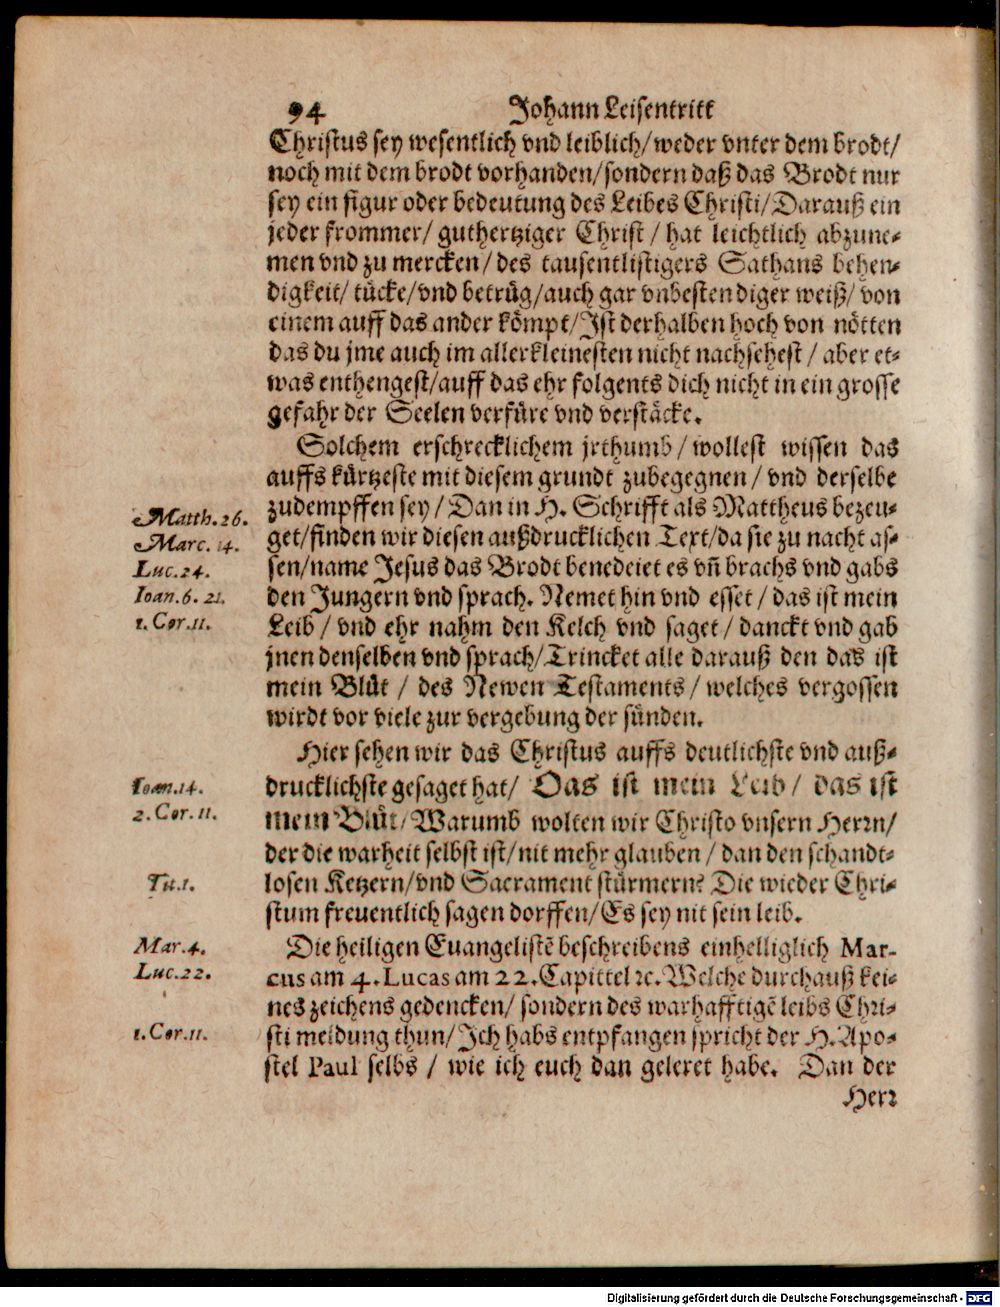 94 Johann Leisentritt
Christus sey wesentlich vnd leiblich/weder vnter dem brodt/
noch mit dem brodt vorhanden/sondern daß das Brodt nur
sey ein figur oder bedeutung des Leibes Christi/Darauß ein
jeder frommer/ guthertziger Christ / hat leichtlich abzune-
men vnd zu mercken / des tausentlistigers Sathans behen-
digkeit/ tücke/vnd betrüg/auch gar vnbestendiger weiß/ von
einem auff das ander kömpt/Ist derhalben hoch von nötten
das du jme auch im allerkleinesten nicht nachsehest / aber et-
was enthengest/auff das ehr folgents dich nicht in ein grosse
gefahr der Seelen verfüre vnd verstäcke.
Solchem erschrecklichem jrthumb / wollest wissen das
auffs kürtzeste mit diesem grundt zubegegnen / vnd derselbe
zudempffen sey / Dan in H. Schrifft als Mattheus bezeu-
get/finden wir diesen außdrucklichen Text/da sie zu nacht as-
sen/name Jesus das Brodt benedeiet es vñ brachs vnd gabs
den Jungern vnd sprach. Nemet hin vnd esset / das ist mein
Leib / vnd ehr nahm den Kelch vnd saget / danckt vnd gab
jnen denselben vnd sprach/Trincket alle darauß den das ist
mein Blůt / des Newen Testaments / welches vergossen
wirdt vor viele zur vergebung der sünden.
Matth. 26.
Marc. 14.
Luc. 24.
Ioan. 6. 21.
1. Cor. 11.
Hier sehen wir das Christus auffs deutlichste vnd auß-
drucklichste gesaget hat/ Das ist mein Leib / das ist
mein Blůt/Warumb wolten wir Christo vnsern Herrn/
der die warheit selbst ist/nit mehr glauben / dan den schandt-
losen Ketzern/vnd Sacrament stürmern? Die wieder Chri-
stum freuentlich sagen dorffen/Es sey nit sein leib.
Ioan. 14.
2. Cor. 11.
Tit. 1.
Die heiligen Euangelistẽ beschreibens einhelliglich Mar-
cus am 4. Lucas am 22. Capittel ꝛc. Welche durchauß kei-
nes zeichens gedencken/ sondern des warhafftigẽ leibs Chri-
sti meldung thun/ Ich habs entpfangen spricht der H. Apo-
stel Paul selbs / wie ich euch dan geleret habe. Dan der
Herr
Mar. 4.
Luc. 22.
1. Cor. 11.
Digitalisierung gefördert durch die Deutsche Forschungsgemeinschaft - DFG